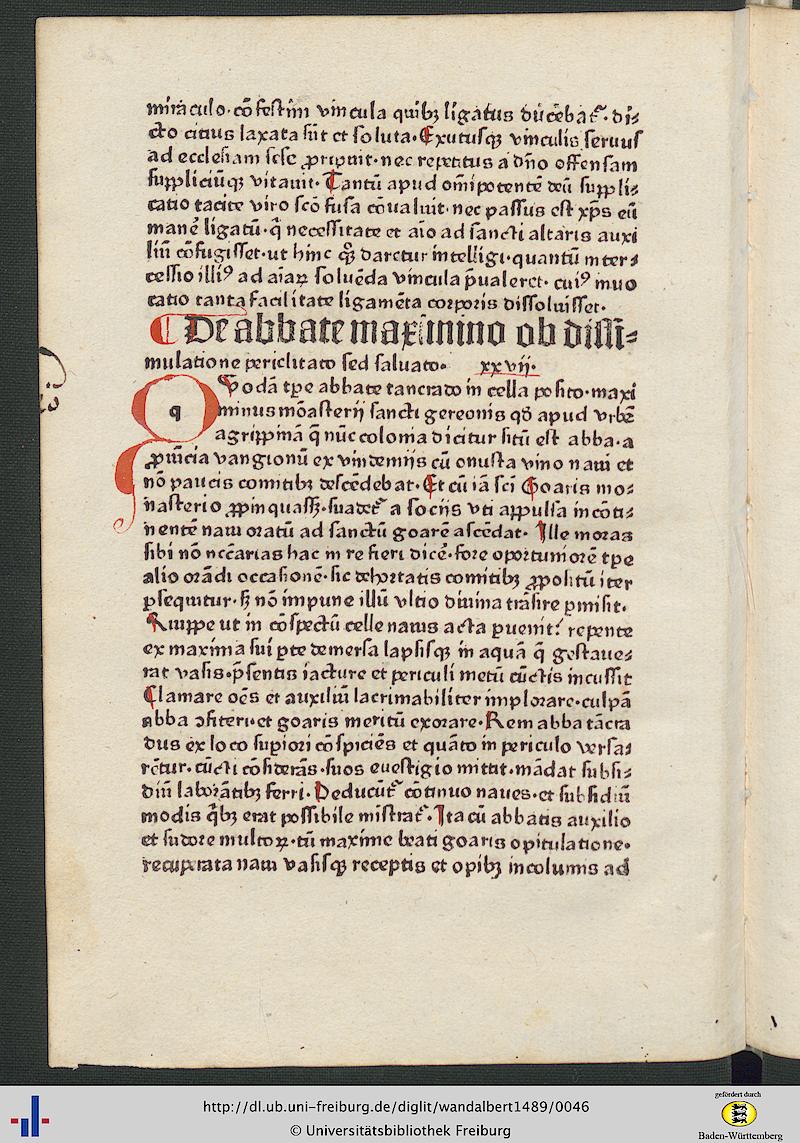 miraculo· cōfestim vincula quibꝫ ligatus ducebat᷑· di⸗
cto citius laxata sūt et soluta· Exutusqꝫ vinculis seruus
ad ecclesiam sese ꝓripuit· nec repetitus a dño offensam
suppliciūqꝫ vitauit· Tantū apud om̄ipotentē deū suppli⸗
catio tacite viro scō fusa cōualuit· nec passus est xp̄s eū
manē ligatū· q̄ necessitate et aīo ad sancti altaris auxi
liū cōfugisset· ut hinc qꝫ daretur intelligi· quantū inter⸗
cessio illiꝰ ad aīaꝝ soluēda vincula p̄ualeret· cuiꝰ inuo
catio tanta facilitate ligamēta corporis dissoluisset·
¶ De abbate maximino ob dissi⸗
mulatione periclitato sed saluato· xxvij·
q Vodā tꝑe abbate tancrado in cella posito· maxi
minus mōasterij sancti gereonis qd̄ apud vrbē
agrippinā q̄ nūc colonia dicitur sitū est abba· a
ꝓuīcia vangionū ex vindemijs cū onusta vino naui et
nō paucis comitibꝫ descēdebat· Et cū iā scī Goaris mo⸗
nasterio ꝓpinquassꝫ· suadet᷑ a socijs vti appulsa in cōti⸗
nentē naui oratū ad sanctū goarē ascēdat· Ille moras
sibi nō nc̄carias hac in re fieri dicēs· fore oportuniorē tꝑe
alio orādi occasionē· sic dehortatis comitibꝫ ꝓpositū iter
ꝑsequitur· sꝫ nō impune illū vltio diuina trāsire ꝑmisit·
Quippe ut in cōspectū celle nauis acta ꝑuenit· repente
ex maxima sui ꝑte demersa lapsisqꝫ in aquā q̄ gestaue⸗
rat vasis· p̄sentis iacture et periculi metū cūctis incussit
Clamare oēs et auxiliū lacrimabiliter implorare· culpā
abba ↄfiteri· et goaris meritū exorare· Rem abba tācra
dus ex loco suꝑiori cōspiciēs et quāto in periculo versa⸗
rētur· cūcti cōsiderās· suos euestigio mittit· mādat subsi⸗
diū laborātibꝫ ferri· Deducūt᷑ cōtinuo naues· et subsidiū
modis q̇bꝫ erat possibile mīstrat᷑· Ita cū abbatis auxilio
et sudore multoꝝ· tū maxime beati goaris opitulatione·
recuperata naui vasisqꝫ receptis et opibꝫ incolumis ad
http://dl.ub.uni-freiburg.de/diglit/wandalbert1489/0046
© Universitätsbibliothek Freiburg
gefördert durch
Baden-Württemberg